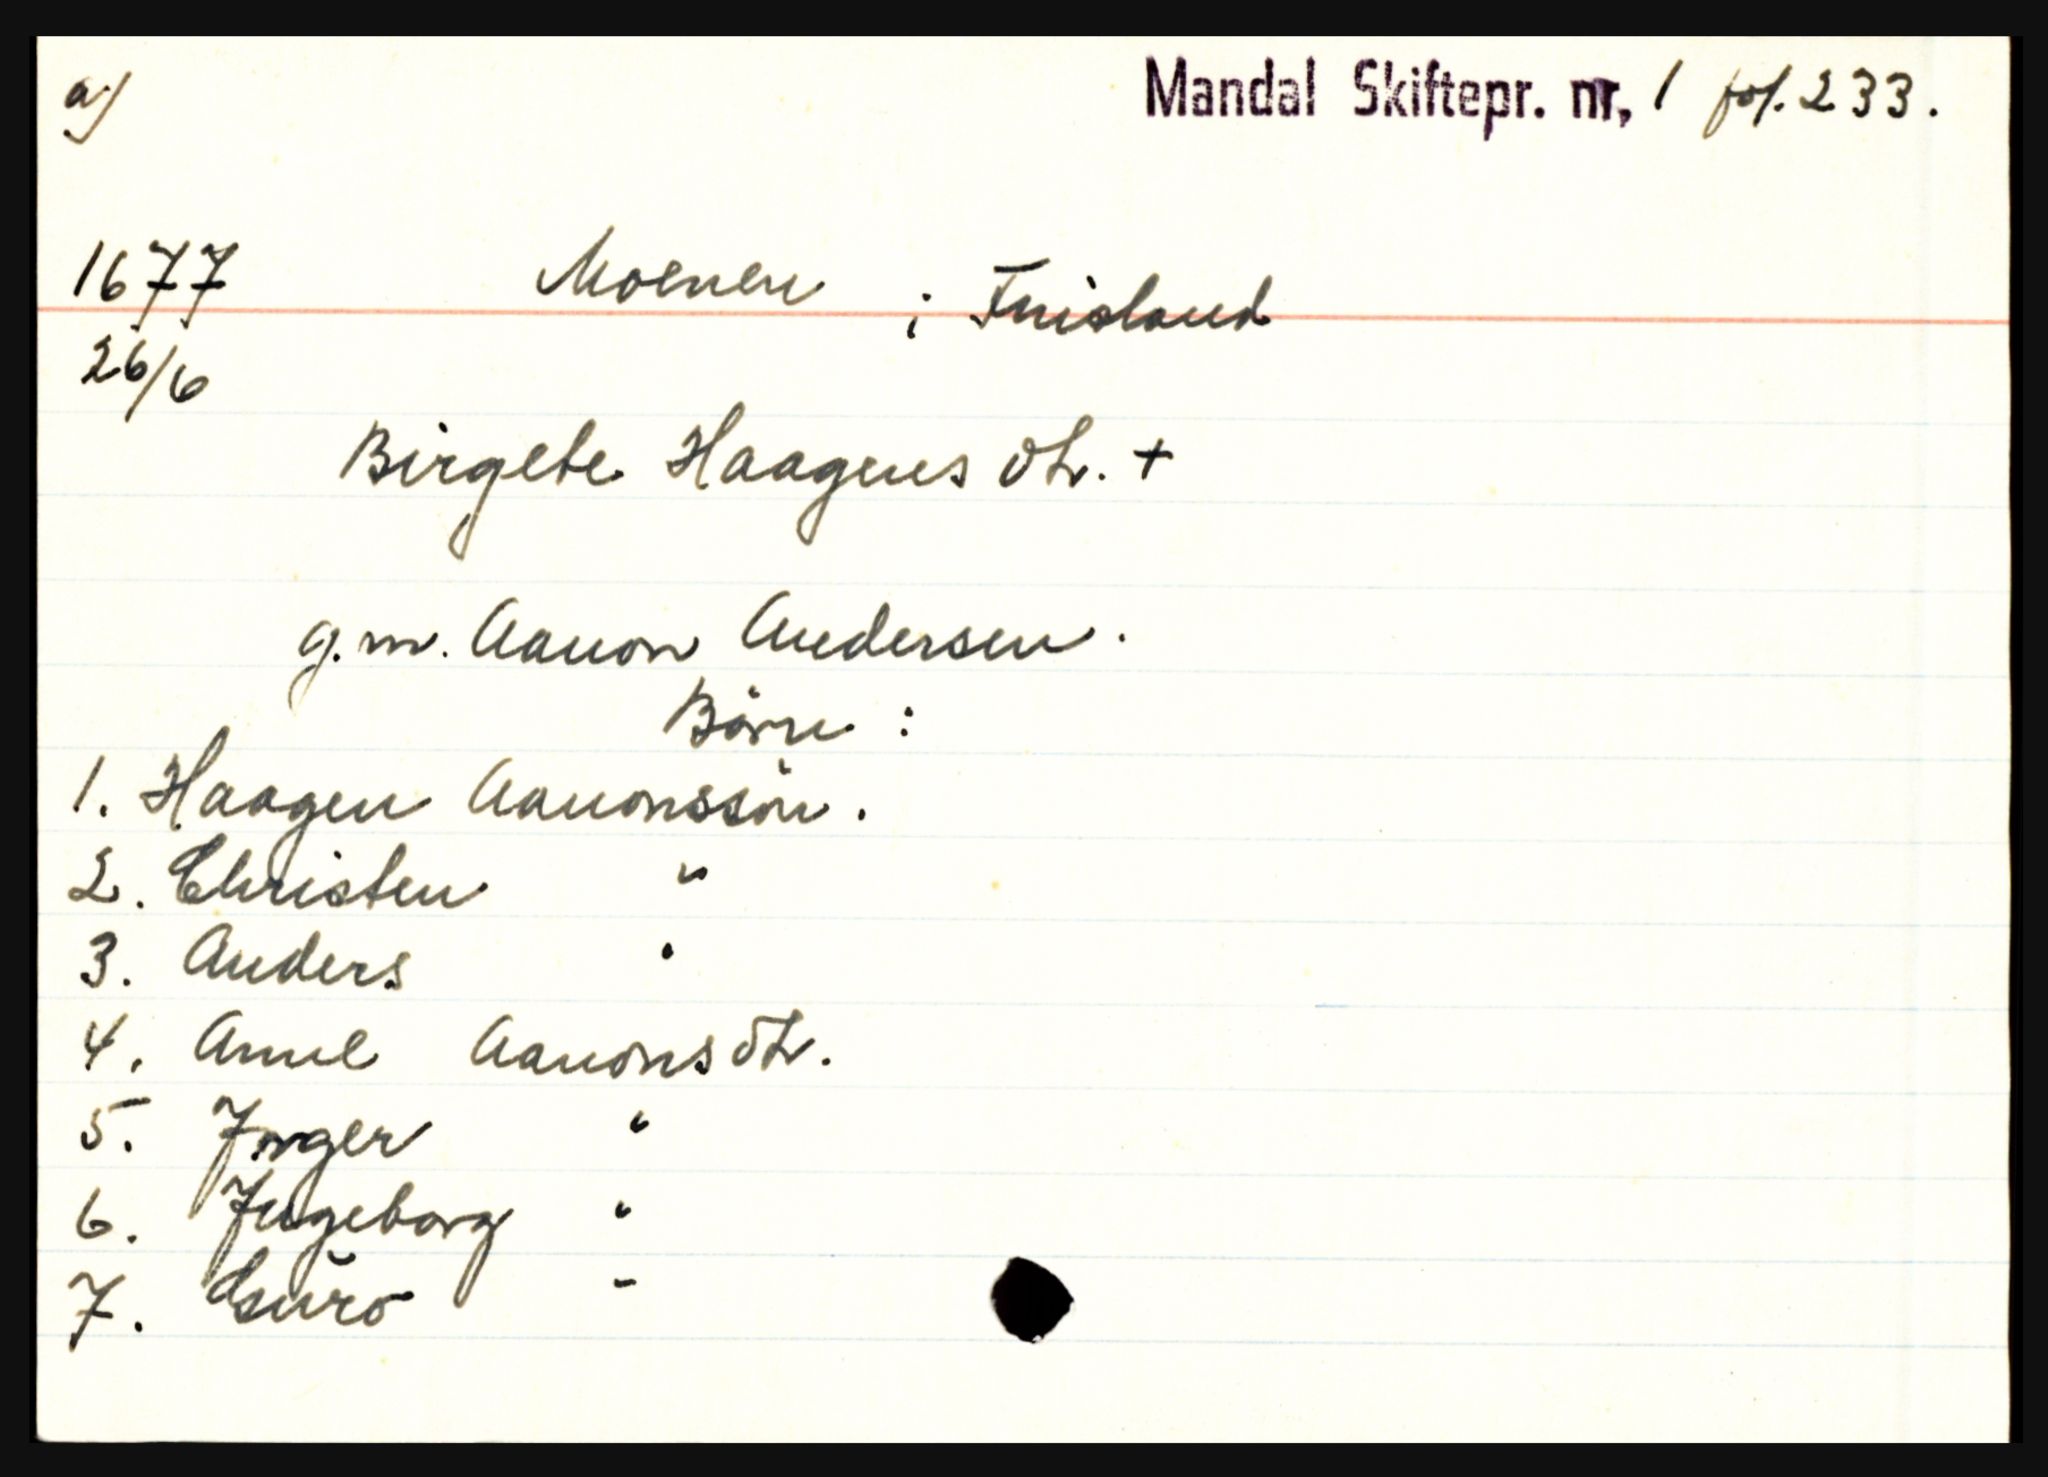 a)
Mandal Skiftepr. nr. 1 fol. 233.
1677 Moenen i Finsland
26/6
Birgete Haagens dtr. +
g.m. Aanon Andersen.
Børn :
1. Haagen Aanonssøn.
2. Christen "
3. Anders "
4. Anne Aanonsdtr.
5. Inger "
6. Ingeborg "
7. Guro "